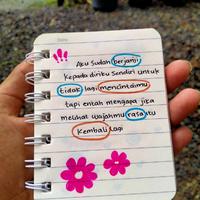 !!!
Aku Sudah berjanji
kepada diriku Sendiri untuk
tidak lagi mencintaimu
tapi entah mengapa jika
melihat wajahmu rasa itu
Kembali lagi